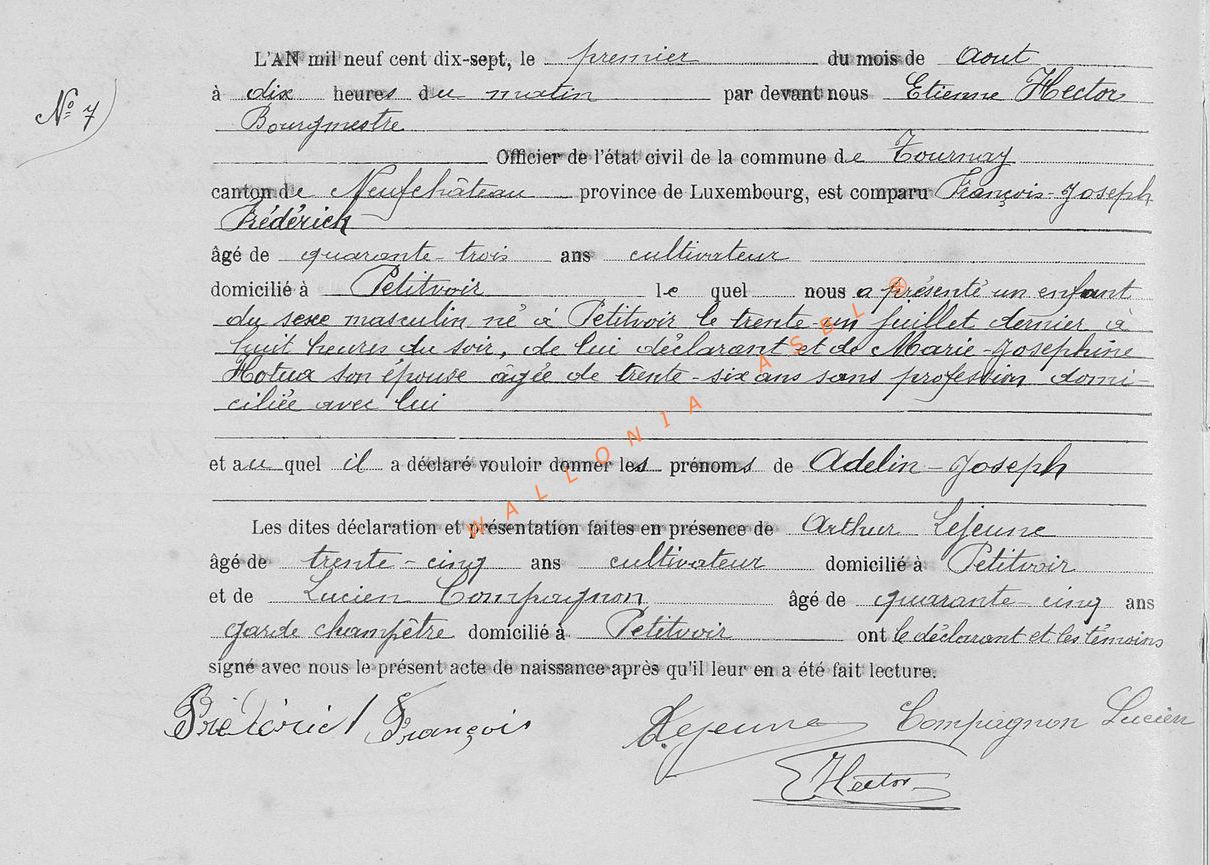 L'AN mil neuf cent dix-sept, le premier du mois de Aout
N° 7
à dix heures du matin par devant nous Etienne Hector
Bourgmestre
Officier de l'état civil de la commune de Tournay
canton de Neufchâteau province de Luxembourg, est comparu François-Joseph
Frédérick
âgé de quarante-trois ans cultivateur
domicilié à Petitvoir le quel nous a présenté un enfant
du sexe masculin né à Petitvoir le trente-un juillet dernier à
huit heures du soir, de lui déclarant et de Marie-Josephine
Hotua son épouse âgée de trente-six ans sans profession domi-
ciliée avec lui
et au quel il a déclaré vouloir donner les prénoms de Adelin-Joseph
Les dites déclaration et présentation faites en présence de Arthur Lejeune
âgé de trente-cinq ans cultivateur domicilié à Petitvoir
et de Lucien Compagnon âgé de quarante-cinq ans
garde champêtre domicilié à Petitvoir ont le déclarant et les témoins
signé avec nous le présent acte de naissance après qu'il leur en a été fait lecture.
François Lejeune Compagnon Lucien
EHector
WALLONIA ASBL ®